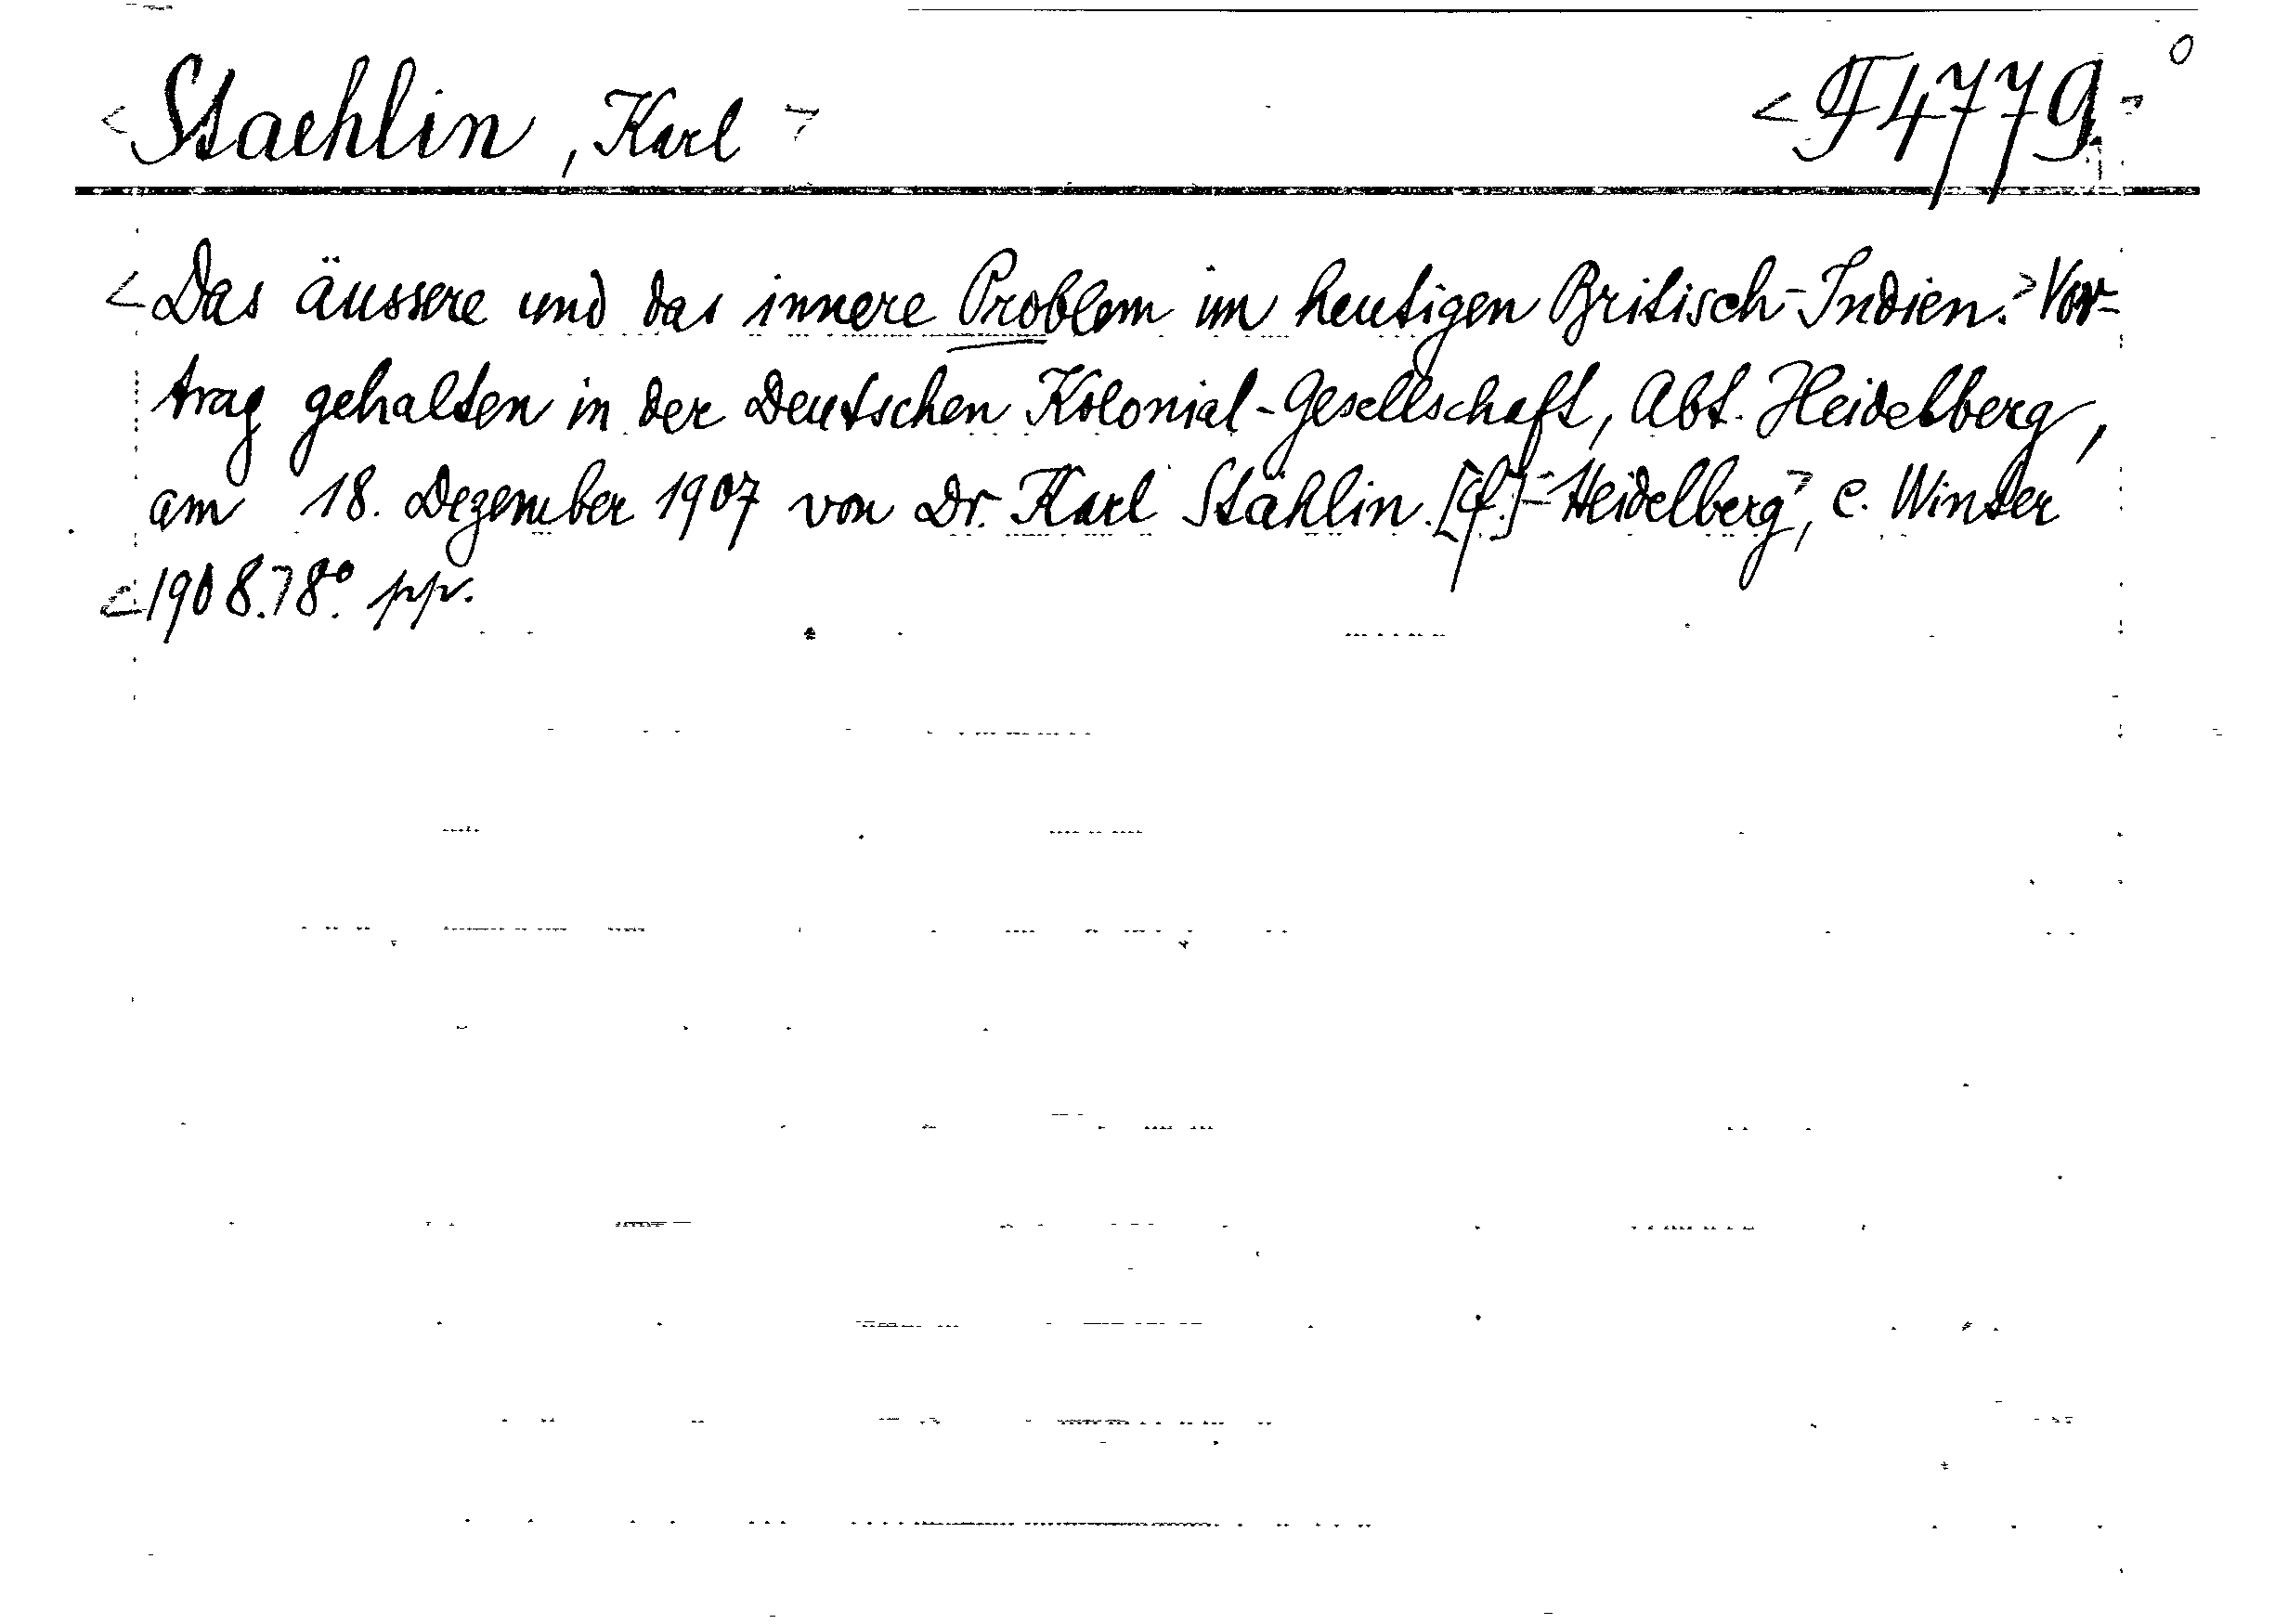 <Staehlin, Karl> <F 4779.> 0
<Das äussere und das innere Problem im heutigen Britisch-Indien.> Vor-
trag gehalten in der Deutschen Kolonial-Gesellschaft, Abt. Heidelberg,
am 18. Dezember 1907 von Dr. Karl Stählin. [cf.] <Heidelberg>, C. Winter
<1908.> 8° pp.